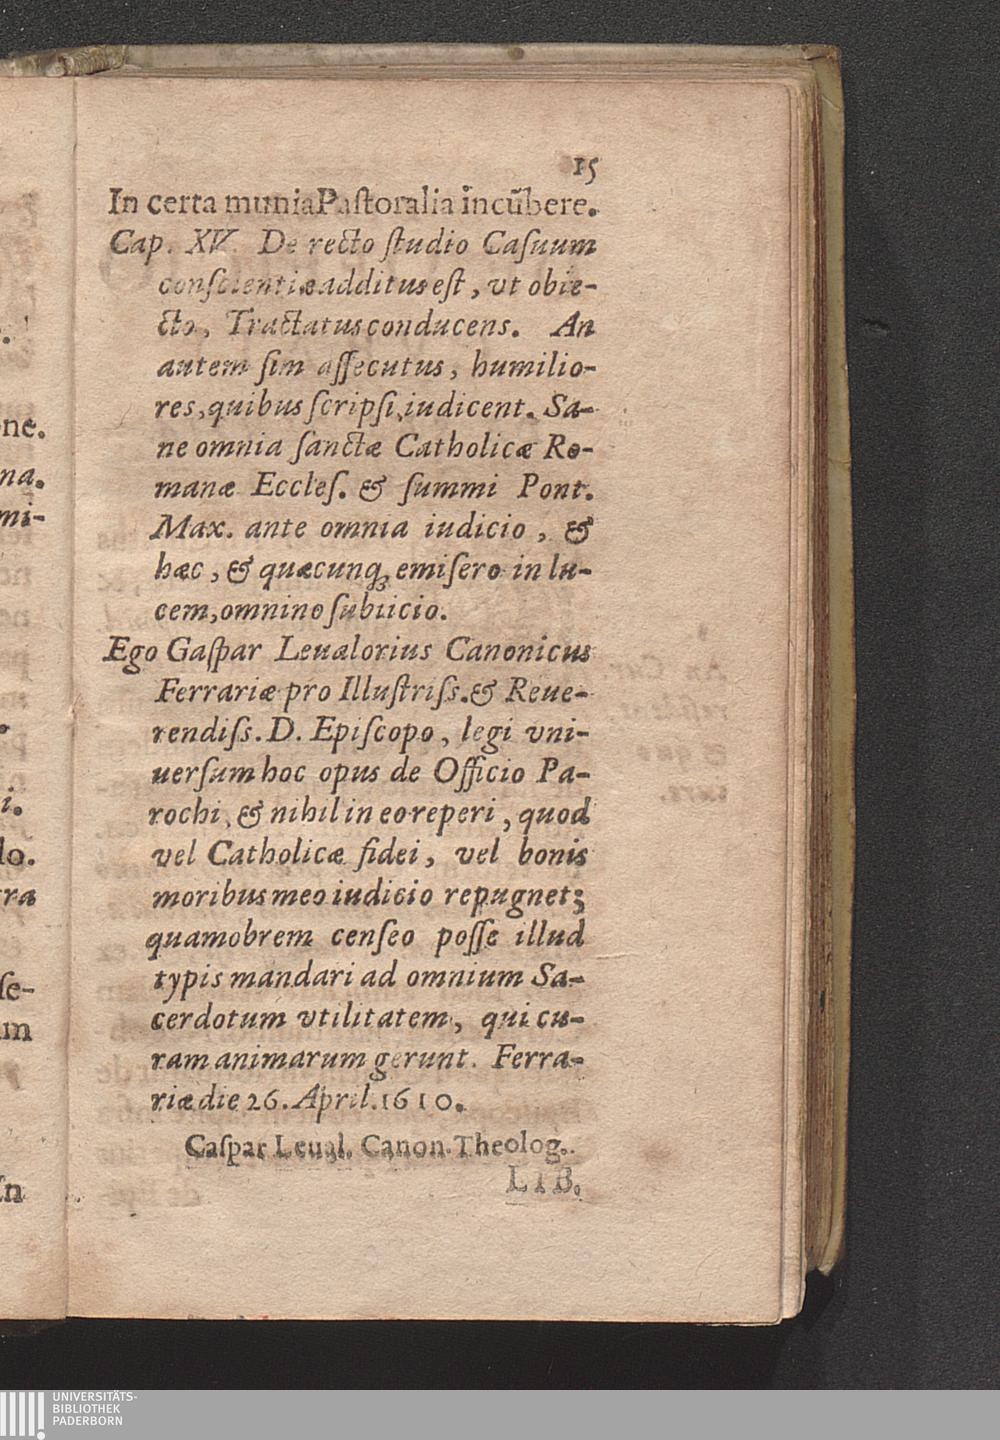 15
In certa munia Paſtoralia incũbere.
Cap. XV. De recto ſtudio Caſuum
conſcientiæ additus eſt, vt obie-
cto, Tractatus conducens. An
autem ſim aſſecutus, humilio-
res, quibus ſcripſi, iudicent. Sa-
ne omnia ſanctæ Catholicæ Ro-
manæ Eccleſ. & ſummi Pont.
Max. ante omnia iudicio, &
hæc, & quæcunq; emiſero in lu-
cem, omnino ſubiicio.
Ego Gaſpar Leualorius Canonicus
Ferrariæ pro Illuſtriſs. & Reue-
rendiſs. D. Epiſcopo, legi vni-
uerſum hoc opus de Officio Pa-
rochi, & nihil in eo reperi, quod
vel Catholicæ fidei, vel bonis
moribus meo iudicio repugnet;
quamobrem cenſeo poſſe illud
typis mandari ad omnium Sa-
cerdotum vtilitatem, qui cu-
ram animarum gerunt. Ferra-
riæ die 26. April. 1610.
Caſpar Leual. Canon. Theolog.
LIB.
ne.
na.
mi-
i.
lo.
ra
ſe-
um
In
UNIVERSITÄTS-
BIBLIOTHEK
PADERBORN